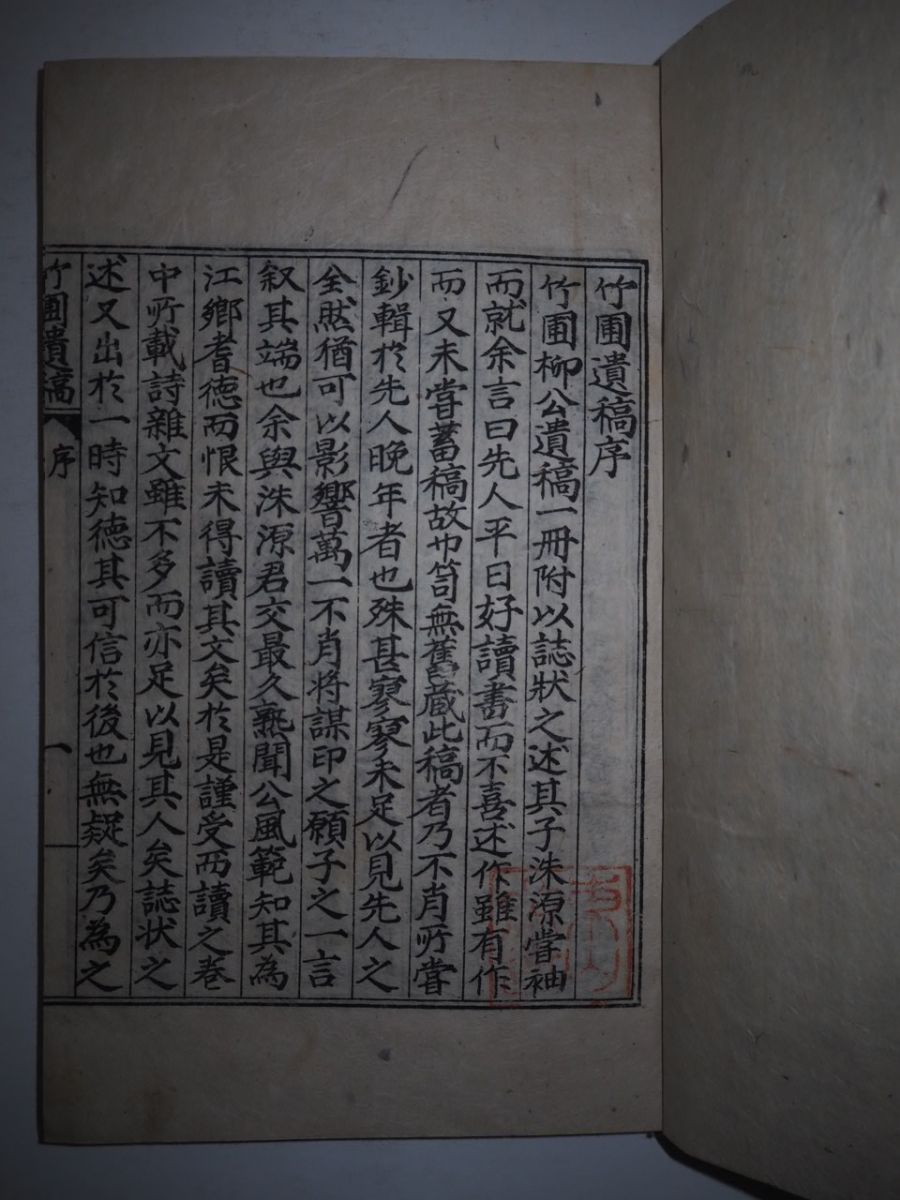 竹圃遺稿序
竹圃柳公遺稿一冊附以誌狀之述其子洙源嘗袖
而就余言曰先人平日好讀書而不喜述作雖有作
而又未嘗蓄稿故巾笥無舊蔵此稿者乃不肖所嘗
鈔輯於先人晚年者也殊甚寥寥未足以見先人之
全然猶可以影響萬一不肖将謀印之願子之一言
叙其端也余與洙源君交最久熟聞公風範知其為
江鄉耆德而恨未得讀其文矣於是謹受而讀之卷
中所載詩雜文雖不多而亦足以見其人矣誌狀之
述又出於一時知德其可信於後也無疑矣乃為之
竹圃遺稿 序 一